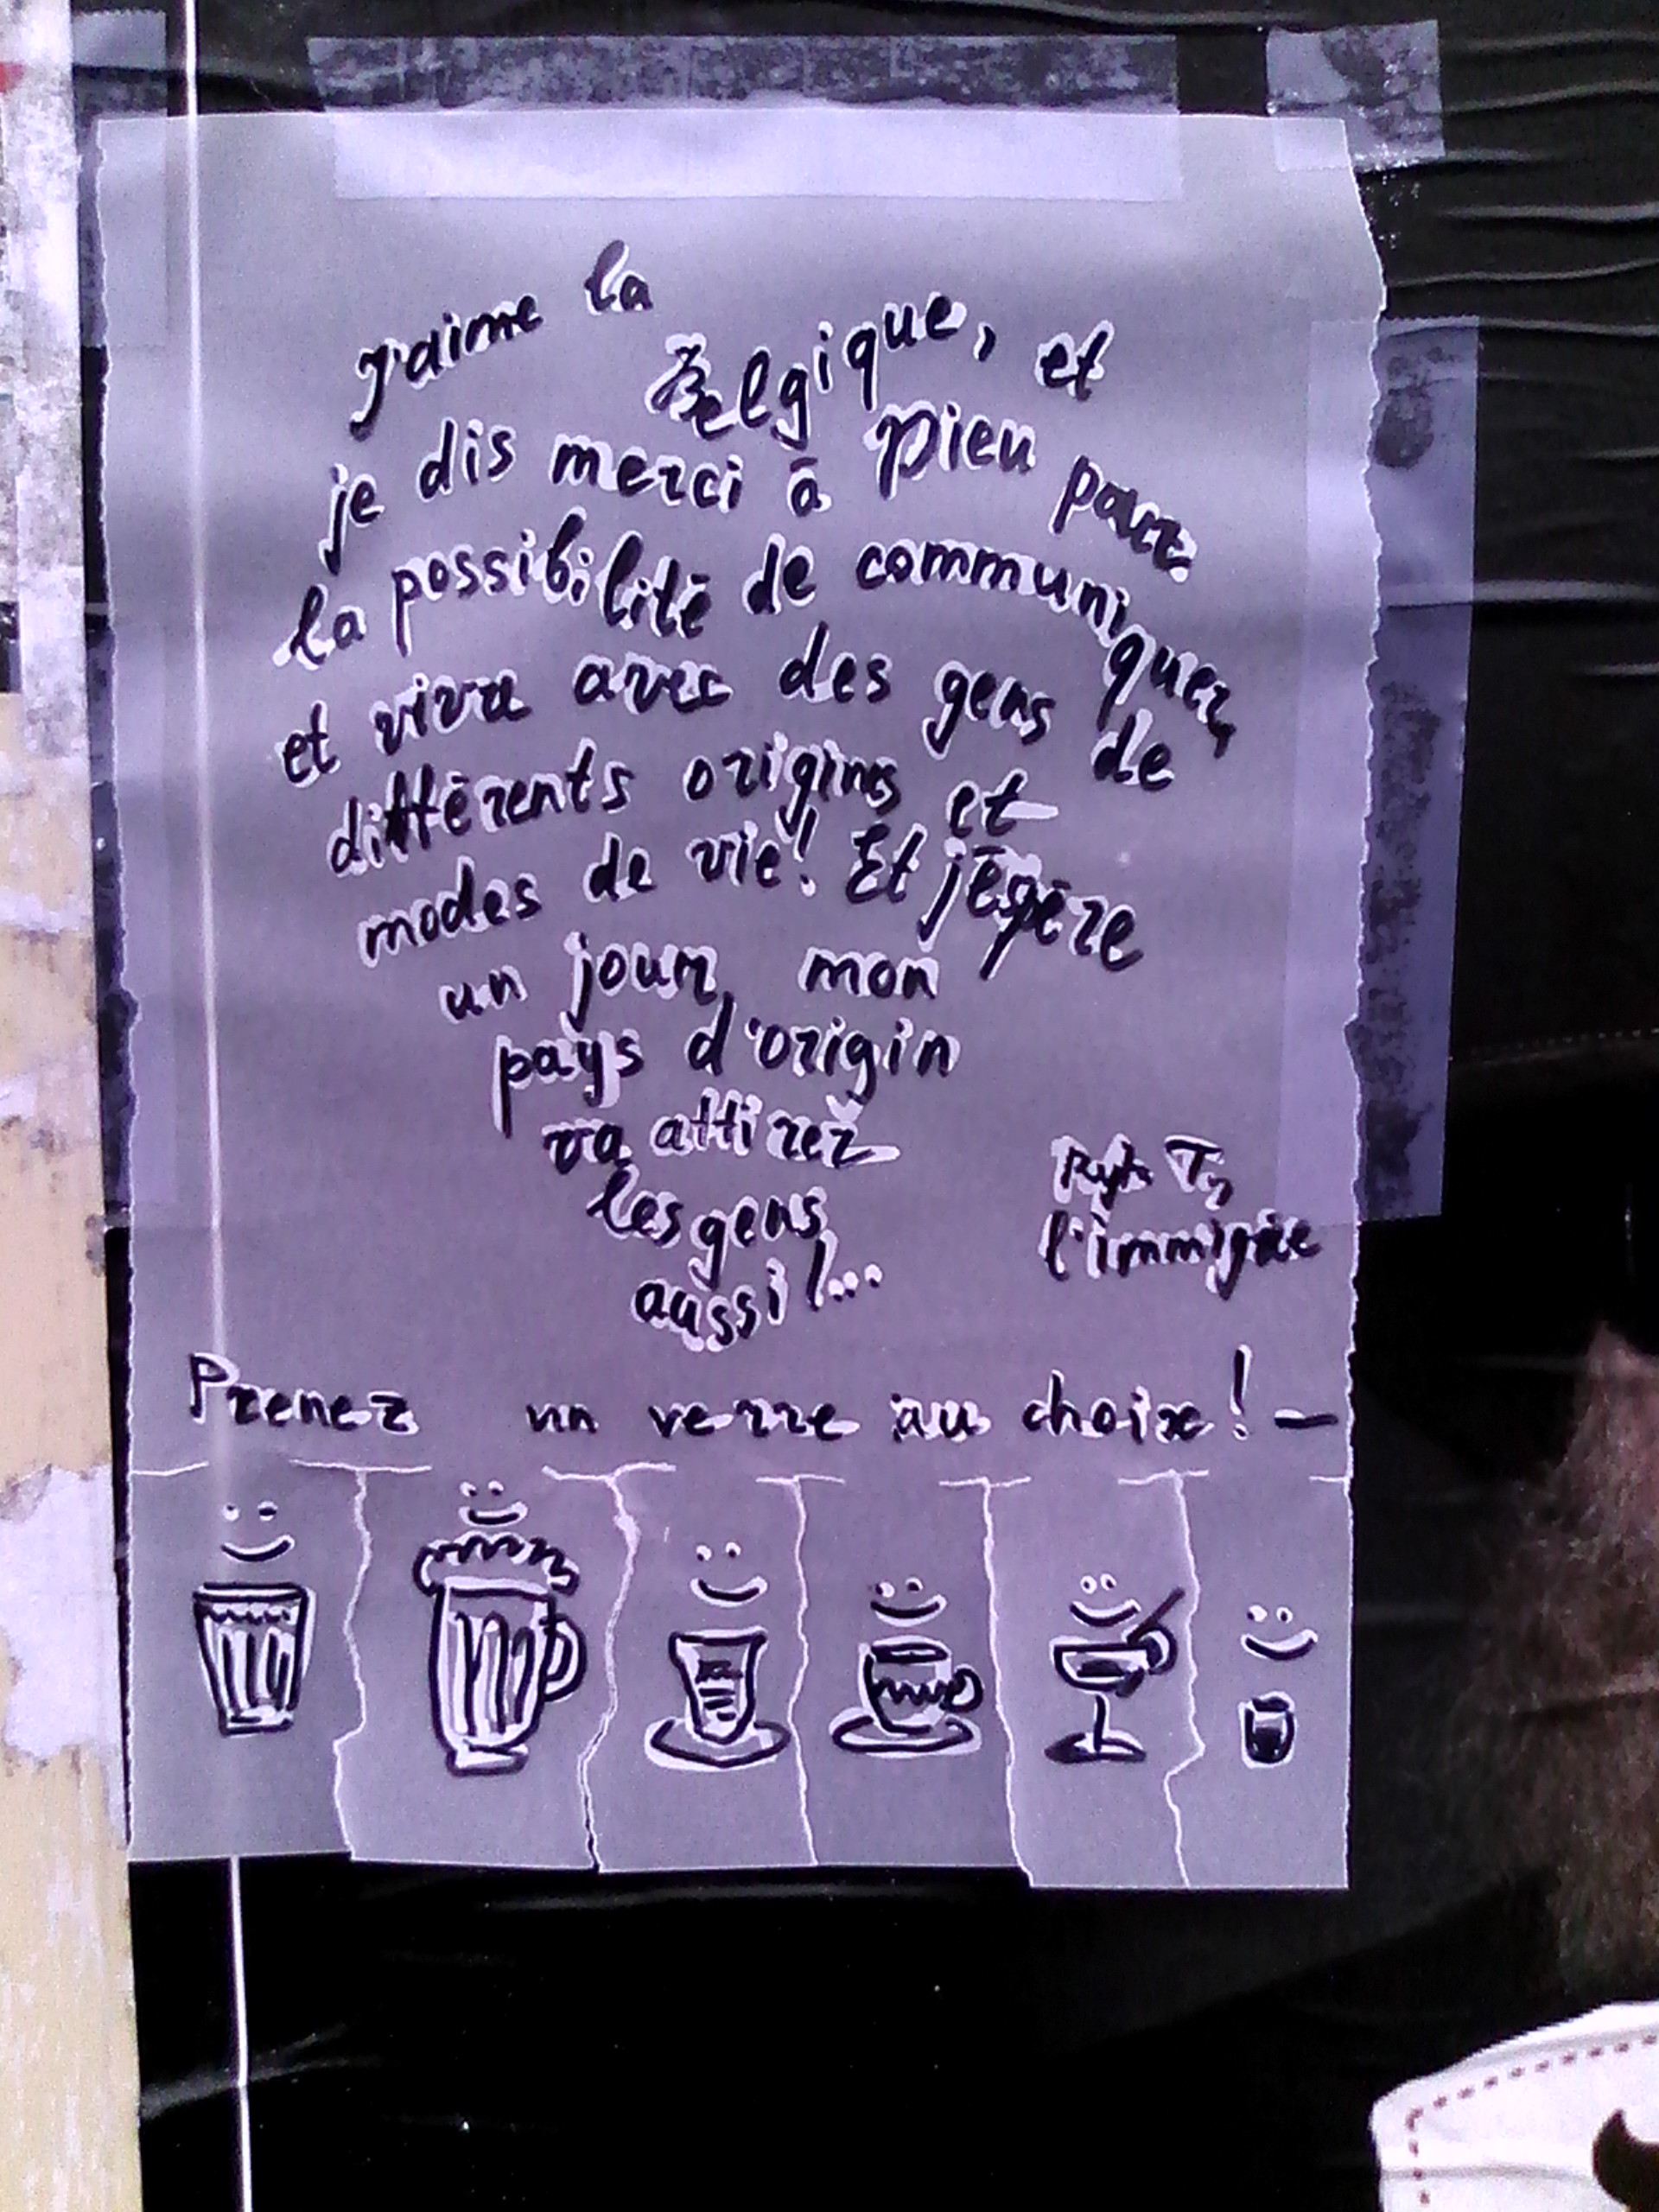 J'aime la
Belgique, et
je dis merci à Dieu par
la possibilité de communiquer,
et vivre avec des gens de
différents origines et
modes de vie! Et j'éspère
un jour, mon
pays d'origin
va attirer
les gens
aussi!...
T,
l'immigrée
Prenez un verre au choix! -